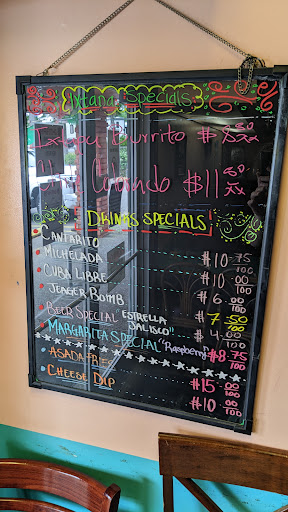 Specials
Burrito $8
$11
DRINKS SPECIALS
CANTARITO $10 75/100
MICHELADA $10 00/100
CUBA LIBRE $6 00/100
JEAGER BOMB $7 50/100
BEER SPECIAL ESTRELLA JALISCO" $4 00/100
MARGARITA SPECIAL "Raspberry" $8.75/100
ASADA FRIES $15 00/100
CHEESE DIP $10 00/100